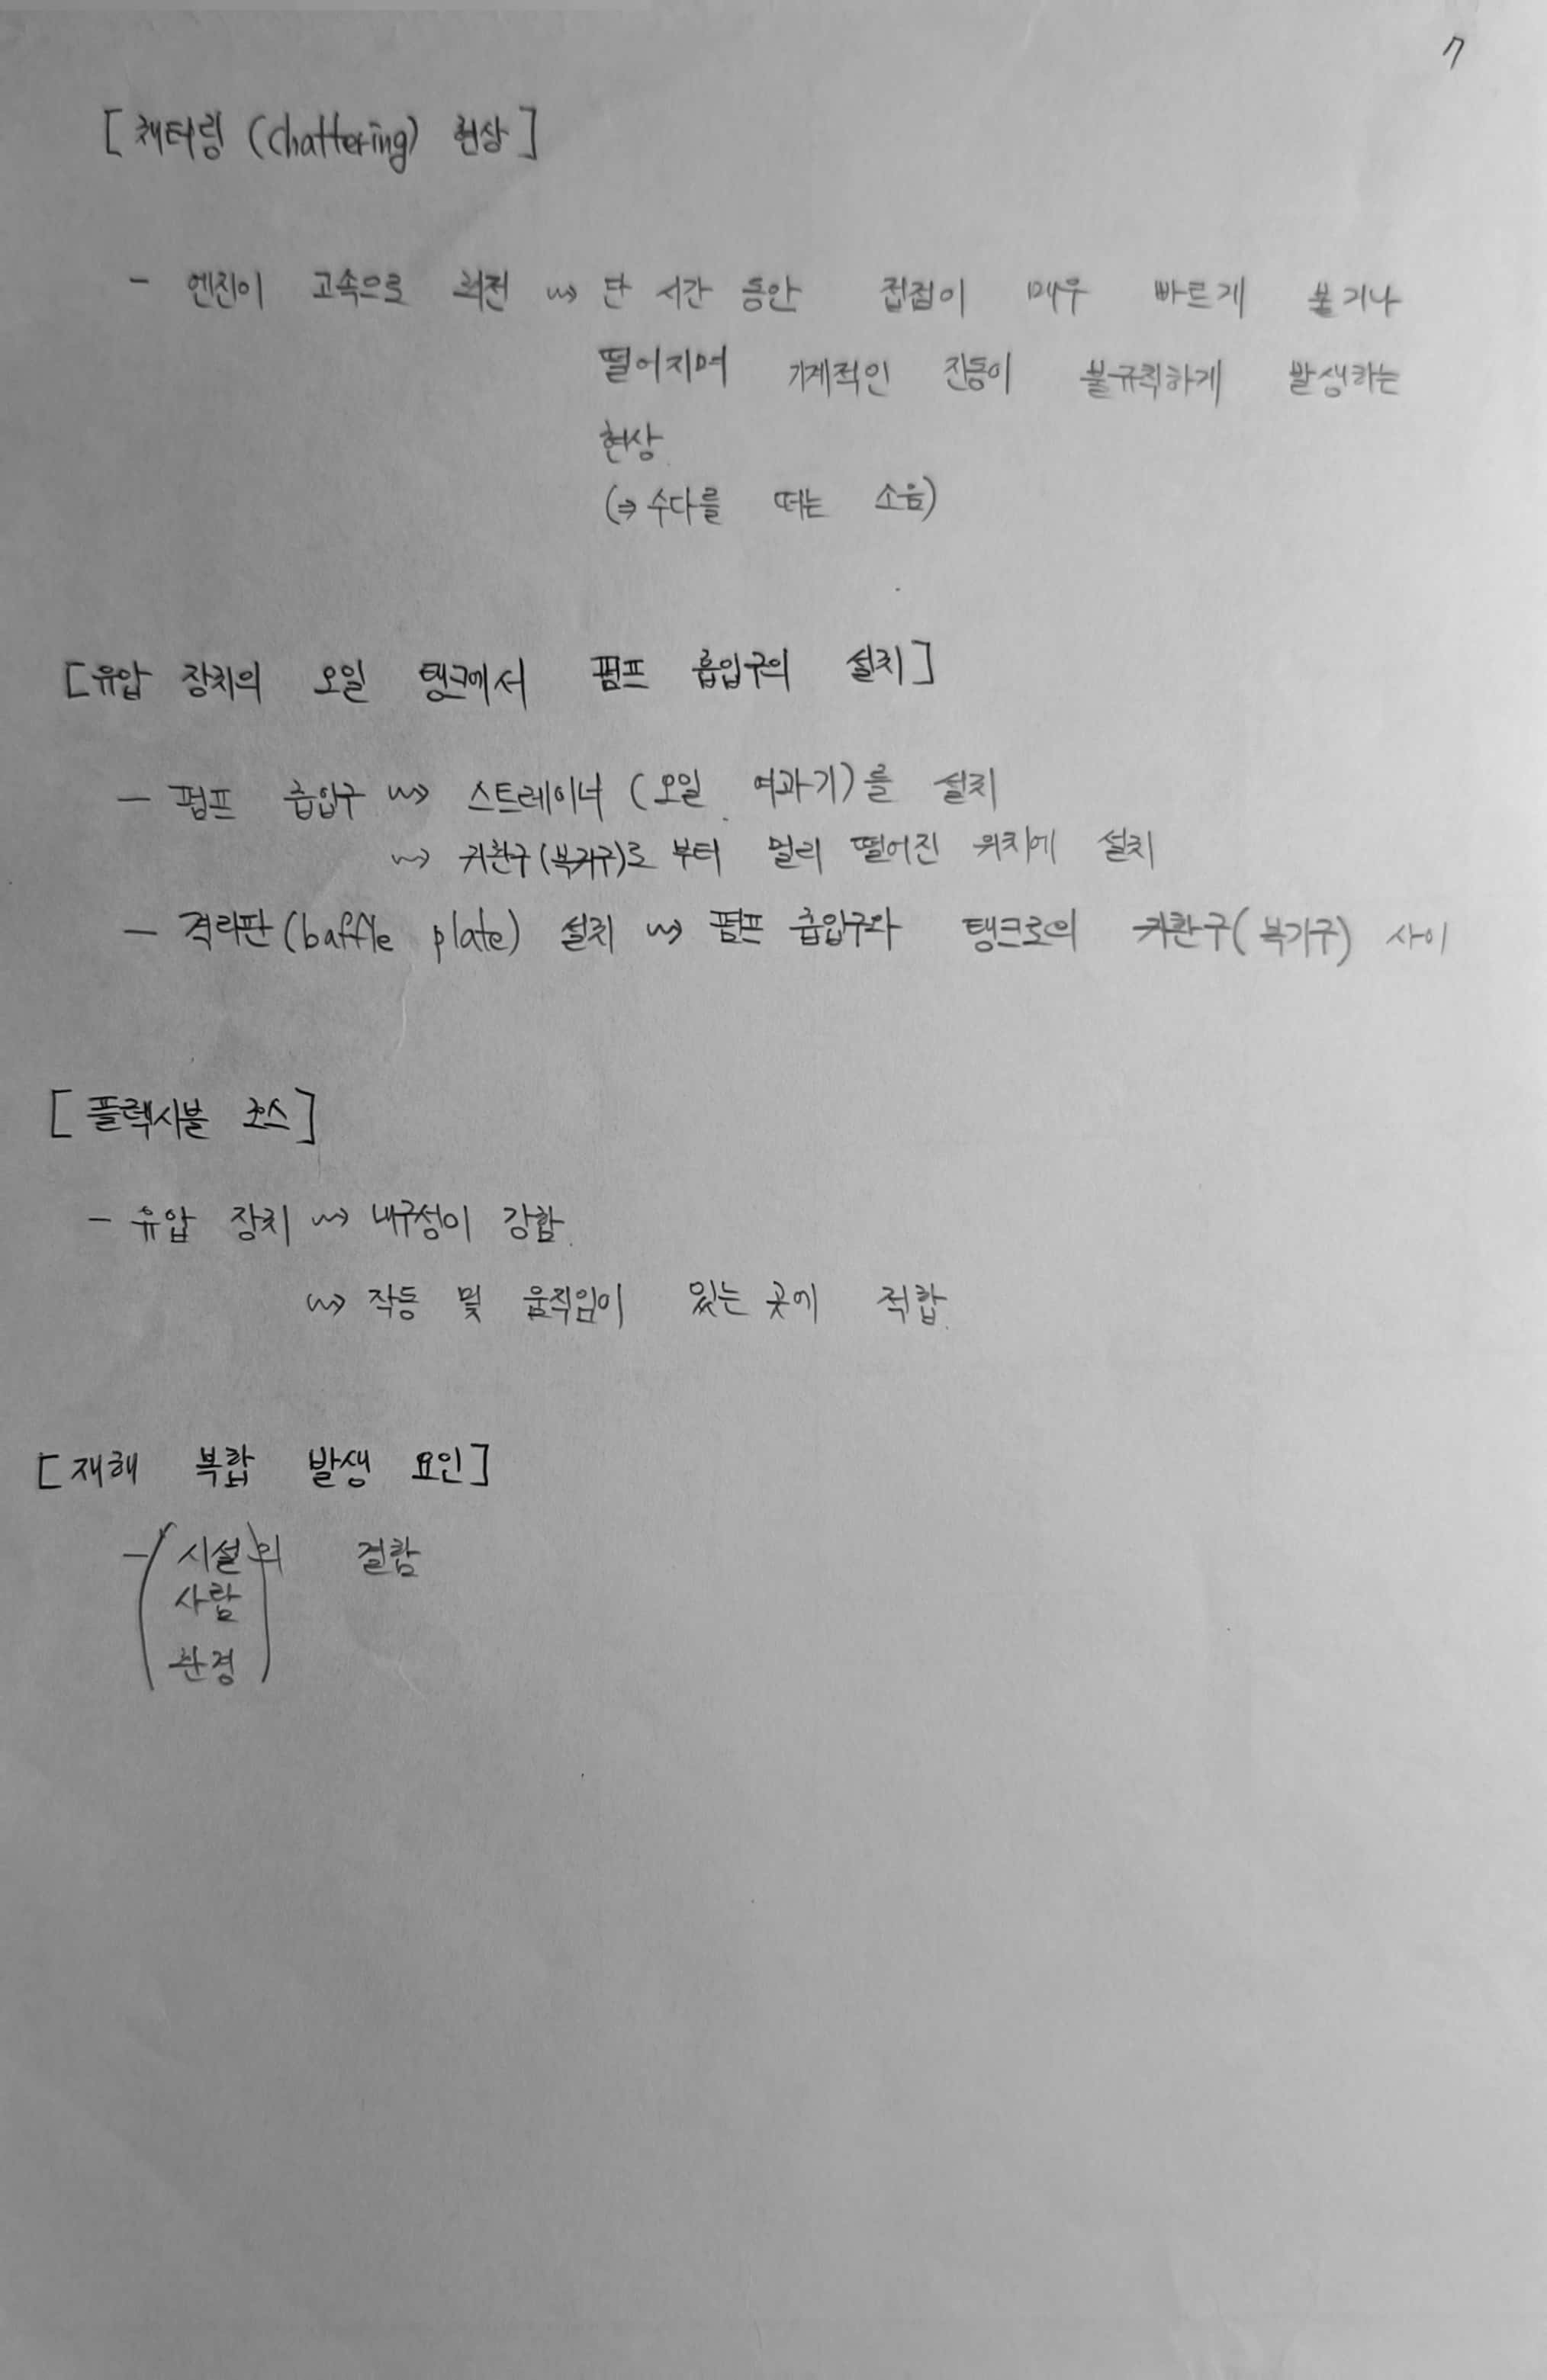 7
[채터링 (chattering) 현상]
- 엔진이 고속으로 회전 ⇝ 단 시간 동안 접점이 매우 빠르게 붙거나
떨어지며 기계적인 진동이 불규칙하게 발생하는
현상
(⇒ 수다를 떠는 소음)
[유압 장치의 오일 탱크에서 펌프 흡입구의 설치]
- 펌프 흡입구 ⇝ 스트레이너 (오일 여과기)를 설치
⇝ 귀환구(복귀구)로 부터 멀리 떨어진 위치에 설치
- 격리판(baffle plate) 설치 ⇝ 펌프 흡입구와 탱크로의 귀환구(복귀구) 사이
[플렉시블 호스]
- 유압 장치 ⇝ 내구성이 강함.
⇝ 작동 및 움직임이 있는 곳에 적합.
[재해 복합 발생 요인]
- (시설)의 결함
사람
환경